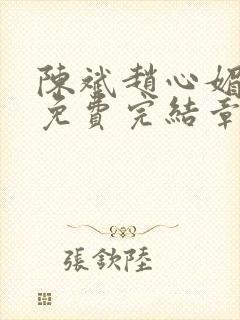 陳斌趙心媚
免費完結章
張欽陸